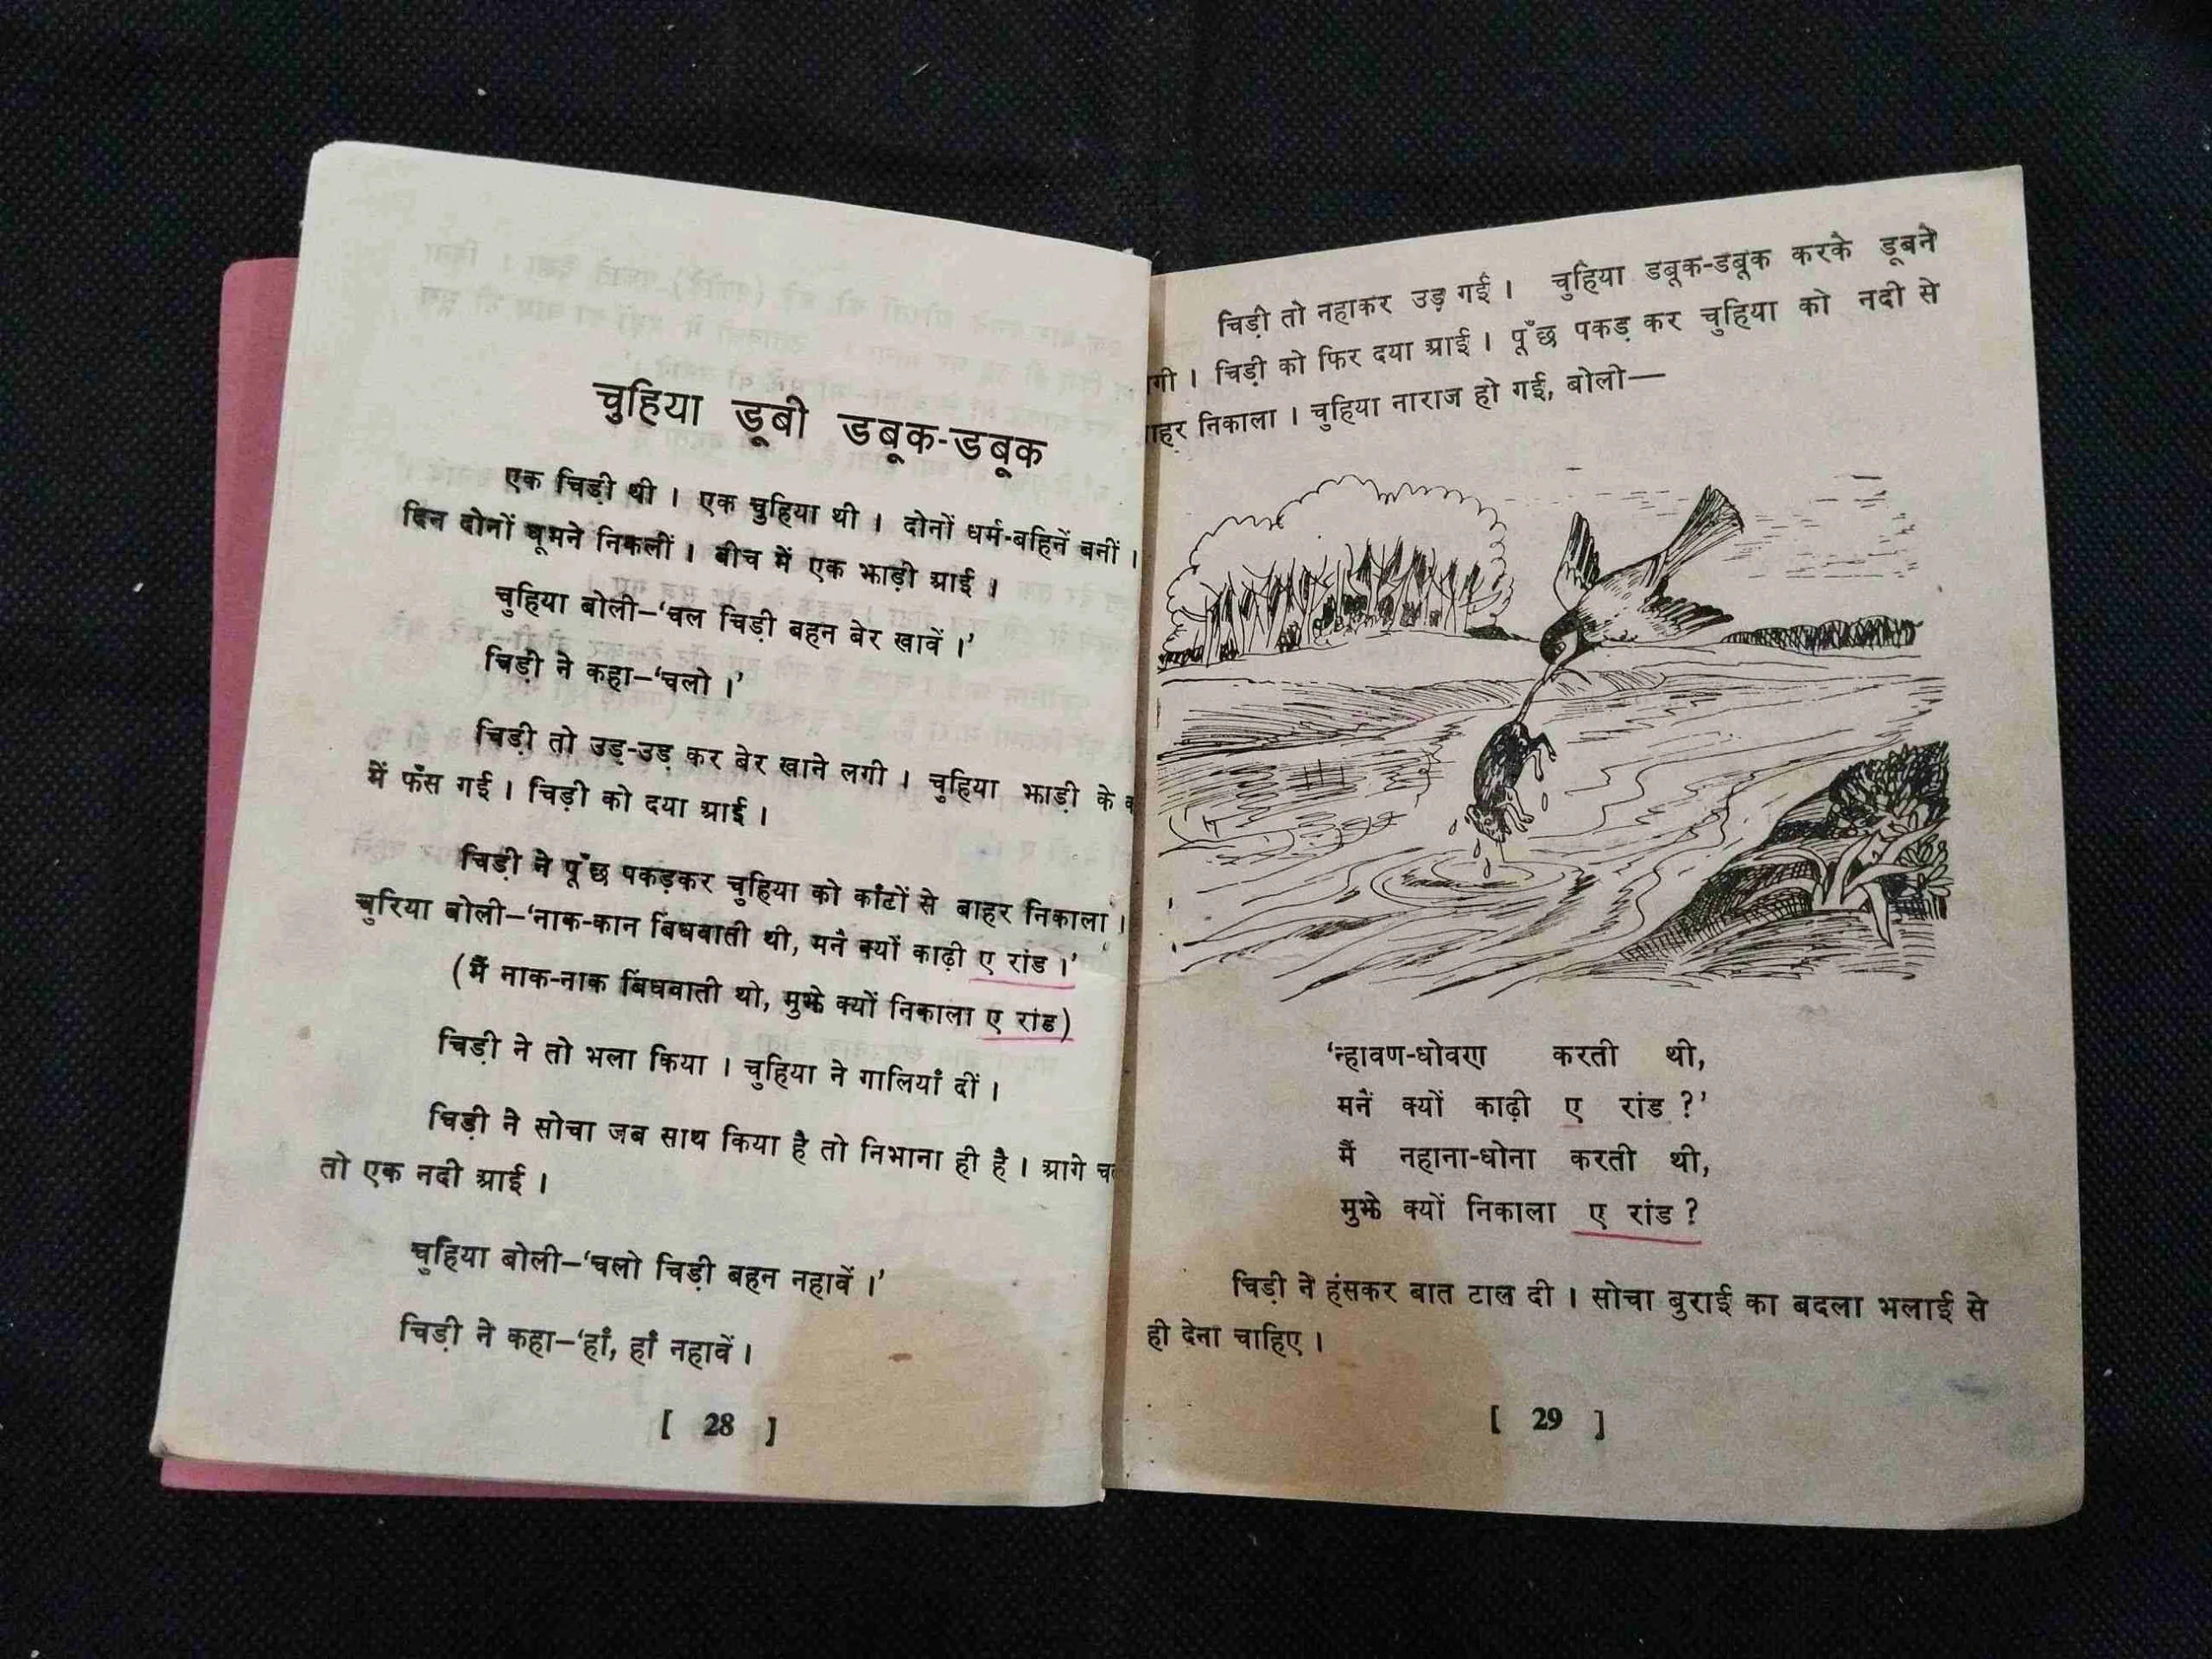 चुहिया डूबी डबूक-डबूक
एक चिड़ी थी । एक चुहिया थी । दोनों धर्म-बहिनें बनीं ।
दिन दोनों घूमने निकलीं । बीच में एक झाड़ी आई ।
चुहिया बोली–‘चल चिड़ी बहन बेर खावें ।’
चिड़ी ने कहा–‘चलो ।’
चिड़ी तो उड़-उड़ कर बेर खाने लगी । चुहिया झाड़ी के
में फँस गई । चिड़ी को दया आई ।
चिड़ी ने पूँछ पकड़कर चुहिया को काँटों से बाहर निकाला ।
चुरिया बोली–‘नाक-कान बिंघवाती थी, मनै क्यों काढ़ी ए रांड ।’
(मैं नाक-नाक बिंघवाती थी, मुझे क्यों निकाला ए रांड)
चिड़ी ने तो भला किया । चुहिया ने गालियाँ दीं ।
चिड़ी ने सोचा जब साथ किया है तो निभाना ही है । आगे
तो एक नदी आई ।
चुहिया बोली–‘चलो चिड़ी बहन नहावें ।’
चिड़ी ने कहा–‘हाँ, हाँ नहावें ।
[ 28 ]
चिड़ी तो नहाकर उड़ गई । चुहिया डबूक-डबूक करके डूबने
गी । चिड़ी को फिर दया आई । पूँछ पकड़ कर चुहिया को नदी से
ाहर निकाला । चुहिया नाराज हो गई, बोली—
‘न्हावण-धोवण करती थी,
मनैं क्यों काढ़ी ए रांड ?’
मैं नहाना-धोना करती थी,
मुझे क्यों निकाला ए रांड ?
चिड़ी ने हंसकर बात टाल दी । सोचा बुराई का बदला भलाई से
ही देना चाहिए ।
[ 29 ]